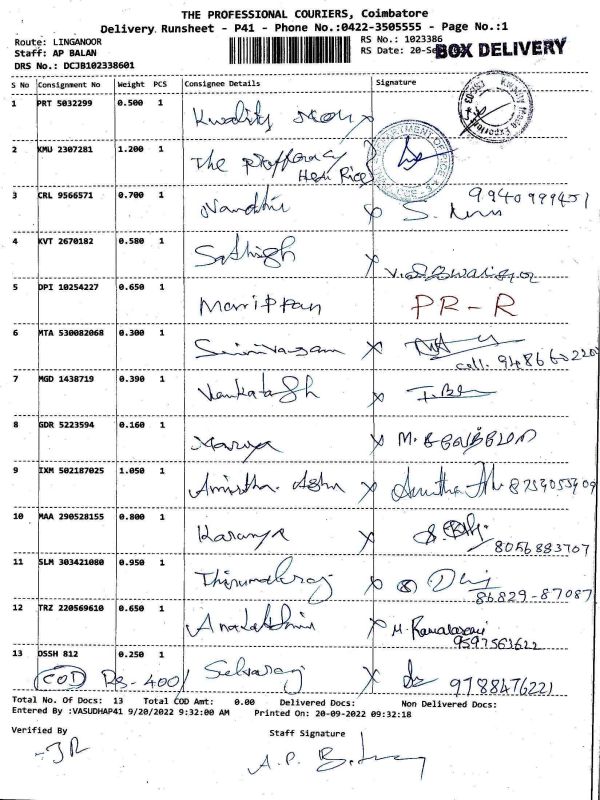 THE PROFESSIONAL COURIERS, Coimbatore
Delivery Runsheet - P41 - Phone No.:0422-3505555 - Page No.:1
Route: LINGANOOR RS No.: 1023386
Staff: AP BALAN RS Date: 20-Se BOX DELIVERY
DRS No.: DCJB102338601
S No Consignment No Weight PCS Consignee Details Signature
1 PRT 5032299 0.500 1 Kwality
2 KMU 2307281 1.200 1 The
3 CRL 9566571 0.700 1 Nandhi x S. 9940999451
4 KVT 2670182 0.580 1 Sathish x
5 DPI 10254227 0.650 1 Marippan PR-R
6 MTA 530082068 0.300 1 Srinivasan x
cell.
7 MGD 1438719 0.390 1 Venkatesh x
8 GDR 5223594 0.160 1 x M.
9 IXM 502187025 1.050 1 Amirtha. x Amritha
10 MAA 290528155 0.800 1 Karanya x
8056883707
11 SLM 303421080 0.950 1 Thirumalraj x
86829-87087
12 TRZ 220569610 0.650 1 x M.
9597563622
13 DSSH 812 0.250 1 Selvaraj x
COD Rs-400/ 9788476221
Total No. Of Docs: 13 Total COD Amt: 0.00 Delivered Docs: Non Delivered Docs:
Entered By :VASUDHAP41 9/20/2022 9:32:00 AM Printed On: 20-09-2022 09:32:18
Verified By Staff Signature
A.P.